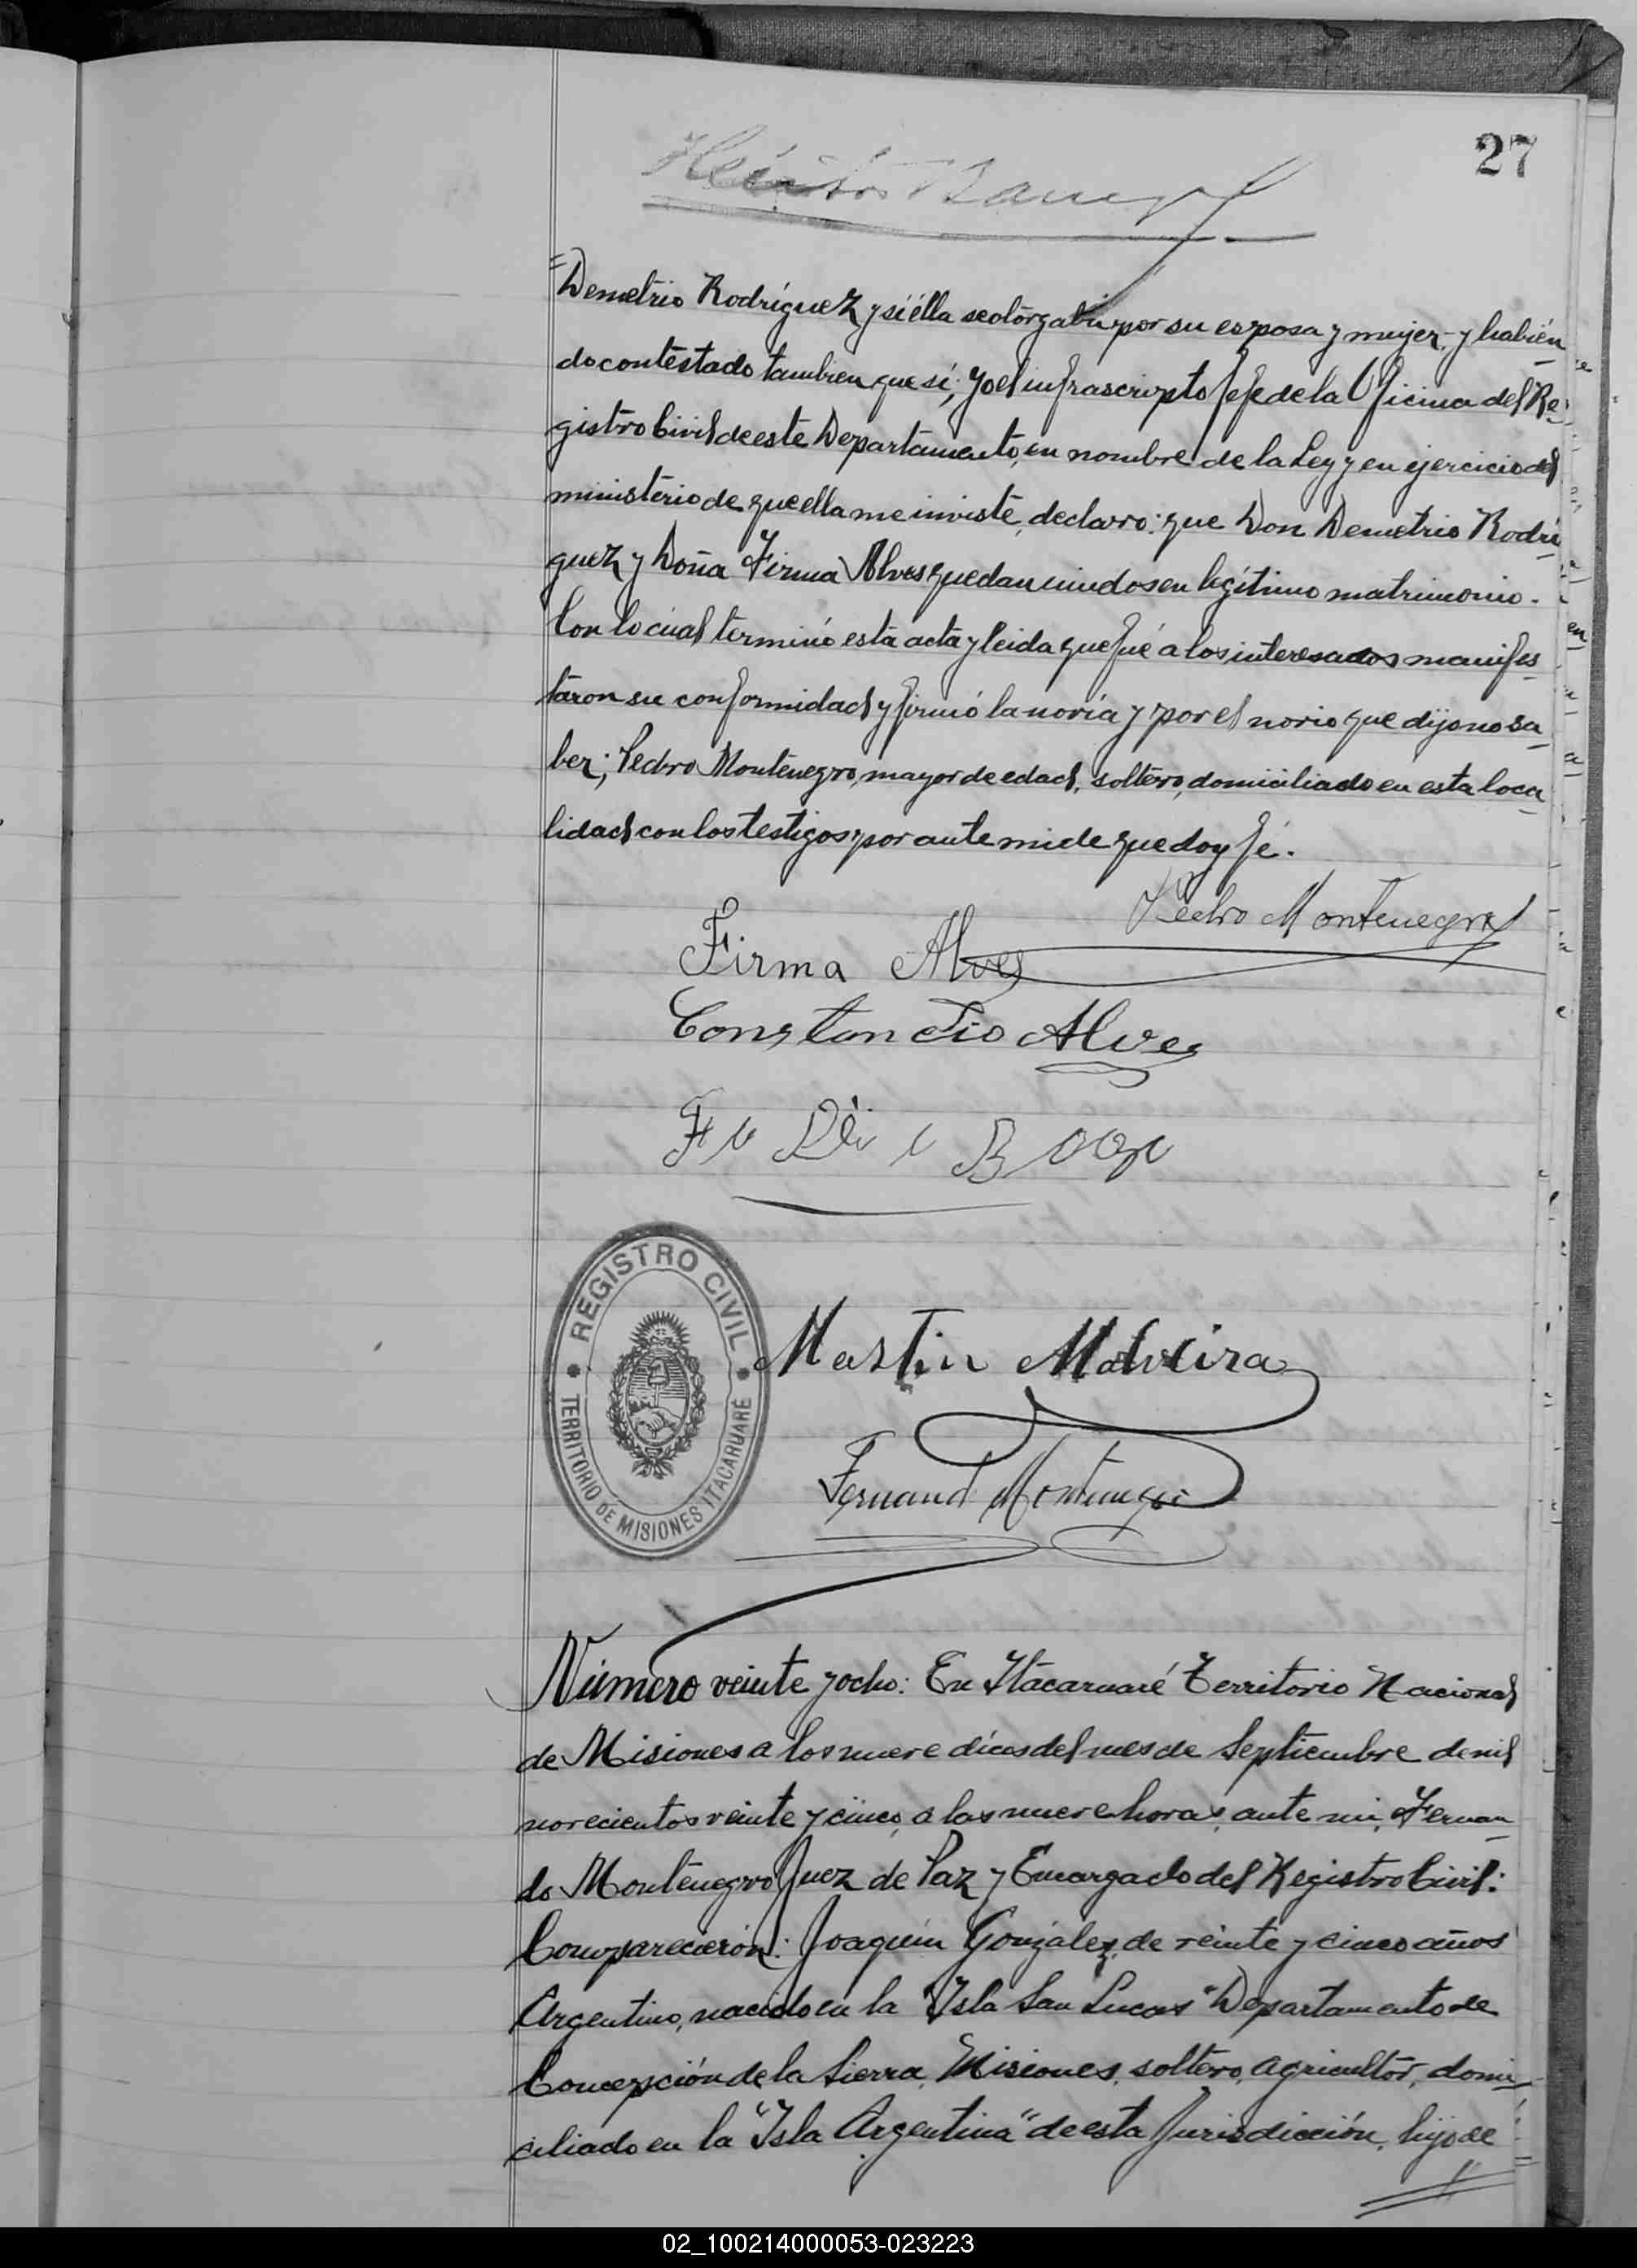 27
=Demetrio Rodríguez y si élla se otorgaba por su esposa y mujer, y habién
do contestado tambien que sí; yo el infrascripto Jefe de la Oficina del Re-
gistro Civil de este Departamento, en nombre de la Ley y en ejercicio del
ministerio de que ella me inviste, declaro: que Don Demetrio Rodrí
guez y Doña Firma Alves quedan unidos en legítimo matrimonio.
Con lo cual terminó esta acta y leida que fué a los interesados manifes
taron su conformidad y firmó la novia y por el novio que dijo no sa
ber; Pedro Montenegro, mayor de edad, soltero, domiciliado en esta loca
lidad con los testigos por ante mi de que doy fé.
Pedro Montenegro
Firma Alves
Constancio Alves
REGISTRO CIVIL
TERRITORIO DE MISIONES ITACARUARÉ
Martin
Fernando Montenegro
Número veinte y ocho: En Itacaruaré Territorio Nacional
de Misiones a los nueve dias del mes de Septiembre de mil
novecientos veinte y cinco, a las nueve horas, ante mi, Fernan
do Montenegro Juez de Paz y Encargado del Registro Civil:
Comparecieron: Joaquín González, de veinte y cinco años
Argentino, nacido en la "Isla San Lucas" Departamento de
Concepción de la Sierra, Misiones, soltero, agricultor, domi
ciliado en la "Isla Argentina" de esta Jurisdicción, hijo de
02_100214000053-023223